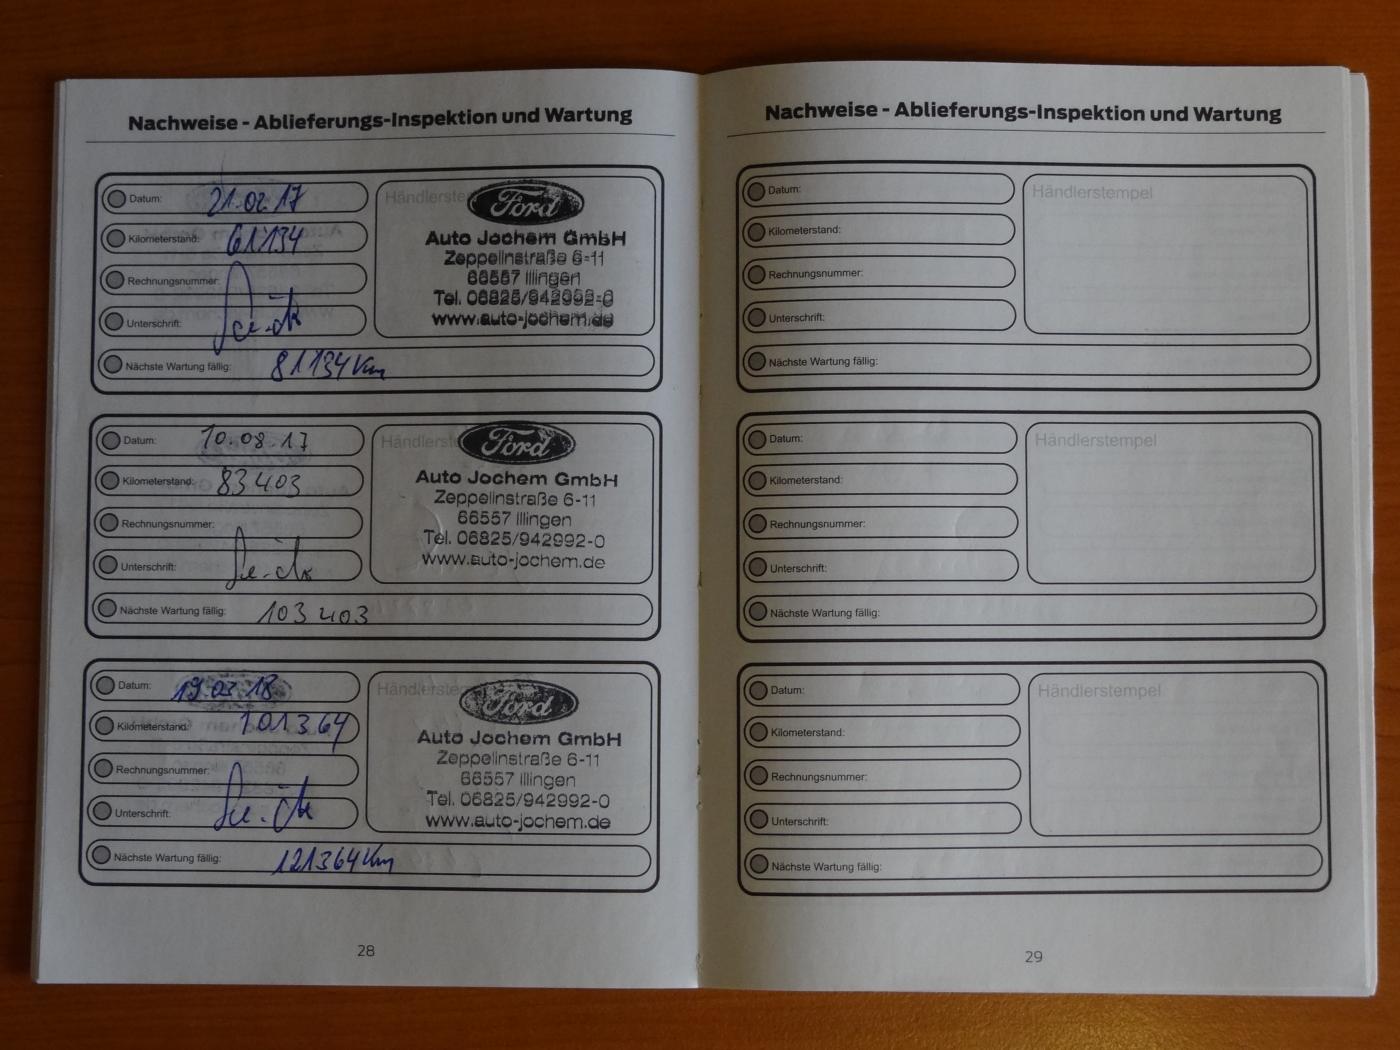 Nachweise - Ablieferungs-Inspektion und Wartung
Datum: 21.02.17
Kilometerstand: 61134
Rechnungsnummer:
Unterschrift:
Nächste Wartung fällig: 81134 Km
Händlerste
Ford
Auto Jochem GmbH
Zeppelinstraße 6-11
66557 Illingen
Tel. 06825/942992-0
www.auto-jochem.de
Datum: 10.08.17
Kilometerstand: 83403
Rechnungsnummer:
Unterschrift:
Nächste Wartung fällig: 103403
Händlerst
Ford
Auto Jochem GmbH
Zeppelinstraße 6-11
66557 Illingen
Tel. 06825/942992-0
www.auto-jochem.de
Datum: 19.03.18
Kilometerstand: 101364
Rechnungsnummer:
Unterschrift:
Nächste Wartung fällig: 121364 Km
Händlerste
Ford
Auto Jochem GmbH
Zeppelinstraße 6-11
66557 Illingen
Tel. 06825/942992-0
www.auto-jochem.de
28
Nachweise - Ablieferungs-Inspektion und Wartung
Datum:
Kilometerstand:
Rechnungsnummer:
Unterschrift:
Nächste Wartung fällig:
Händlerstempel
Datum:
Kilometerstand:
Rechnungsnummer:
Unterschrift:
Nächste Wartung fällig:
Händlerstempel
Datum:
Kilometerstand:
Rechnungsnummer:
Unterschrift:
Nächste Wartung fällig:
Händlerstempel
29